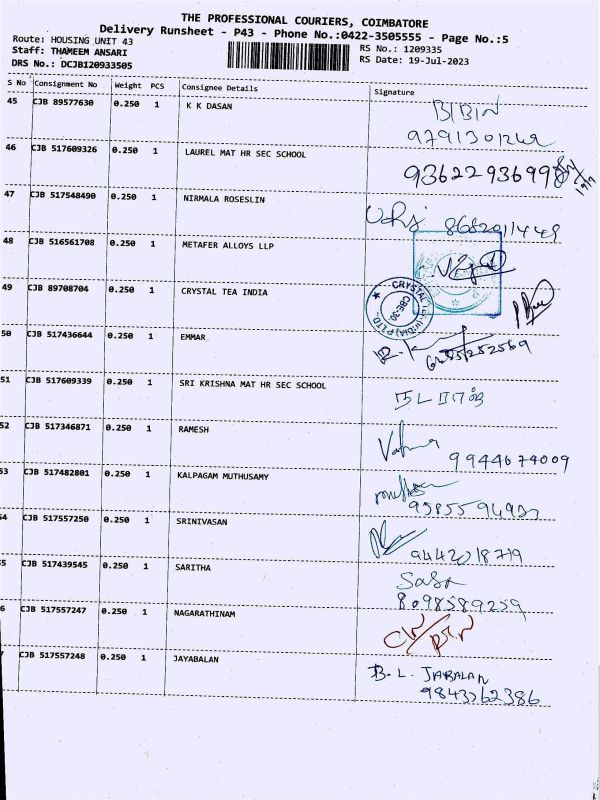 THE PROFESSIONAL COURIERS, COIMBATORE
Delivery Runsheet - P43 - Phone No.:0422-3505555 - Page No.:5
Route: HOUSING UNIT 43
RS No.: 1209335
Staff: THAMEEM ANSARI
RS Date: 19-Jul-2023
DRS No.: DCJBI20933505
S No Consignment No Weight PCS Consignee Details Signature
45 CJB 89577630 0.250 1 K K DASAN BIBIN
46 CJB 517609326 0.250 1 LAUREL MAT HR SEC SCHOOL
47 CJB 517548490 0.250 1 NIRMALA ROSESLIN 8682011449
48 CJB 516561708 0.250 1 METAFER ALLOYS LLP
49 CJB 89708704 0.250 1 CRYSTAL TEA INDIA
50 CJB 517436644 0.250 1 EMMAR
51 CJB 517609339 0.250 1 SRI KRISHNA MAT HR SEC SCHOOL
52 CJB 517346871 0.250 1 RAMESH
9944674009
53 CJB 517482801 0.250 1 KALPAGAM MUTHUSAMY
54 CJB 517557250 0.250 1 SRINIVASAN
9442018719
55 CJB 517439545 0.250 1 SARITHA
8098589259
6 CJB 517557247 0.250 1 NAGARATHINAM
7 CJB 517557248 0.250 1 JAYABALAN B. L. JABALAN